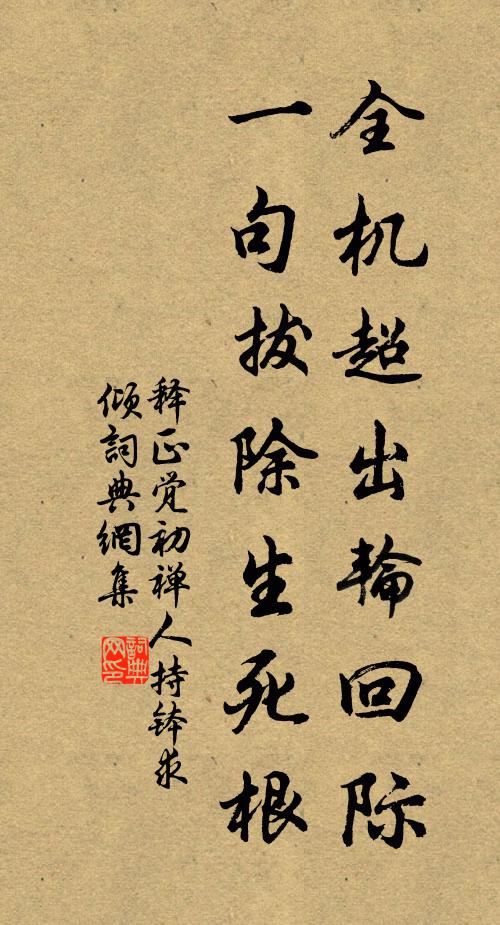 全机超出輪回际
一句拔除生死根
释正觉初禅人持钵求
倾詞典網集
詞典网印